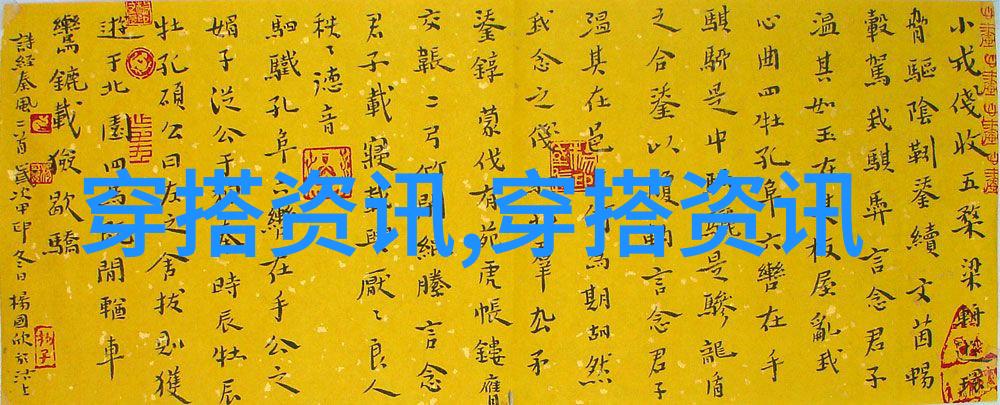 小戎俴收五楘梁輈
脅驅陰靷鋈續文茵暢
轂駕我騏馵言念君子
溫其如玉在其板屋亂我
心曲四牡孔阜六轡在手
騏駵是中是驂龍盾
之合鋈以言念君子
溫其在邑為期胡然
我念之俴羣厹矛
鋈錞蒙伐有苑虎帳鏤膺
交韔二弓竹閉緄縢言念
君子載寢載興厭〻良人
秩〻德音
駟驖孔阜六轡在手公之
媚子從公于狩時辰牡辰
牡孔碩公曰左之舍拔則獲
遊于北園四馬閒輶車
鸞鑣載獫歇驕
詩經秦風二首歲次甲申冬日楊國欣於
穿搭资讯,穿搭资讯